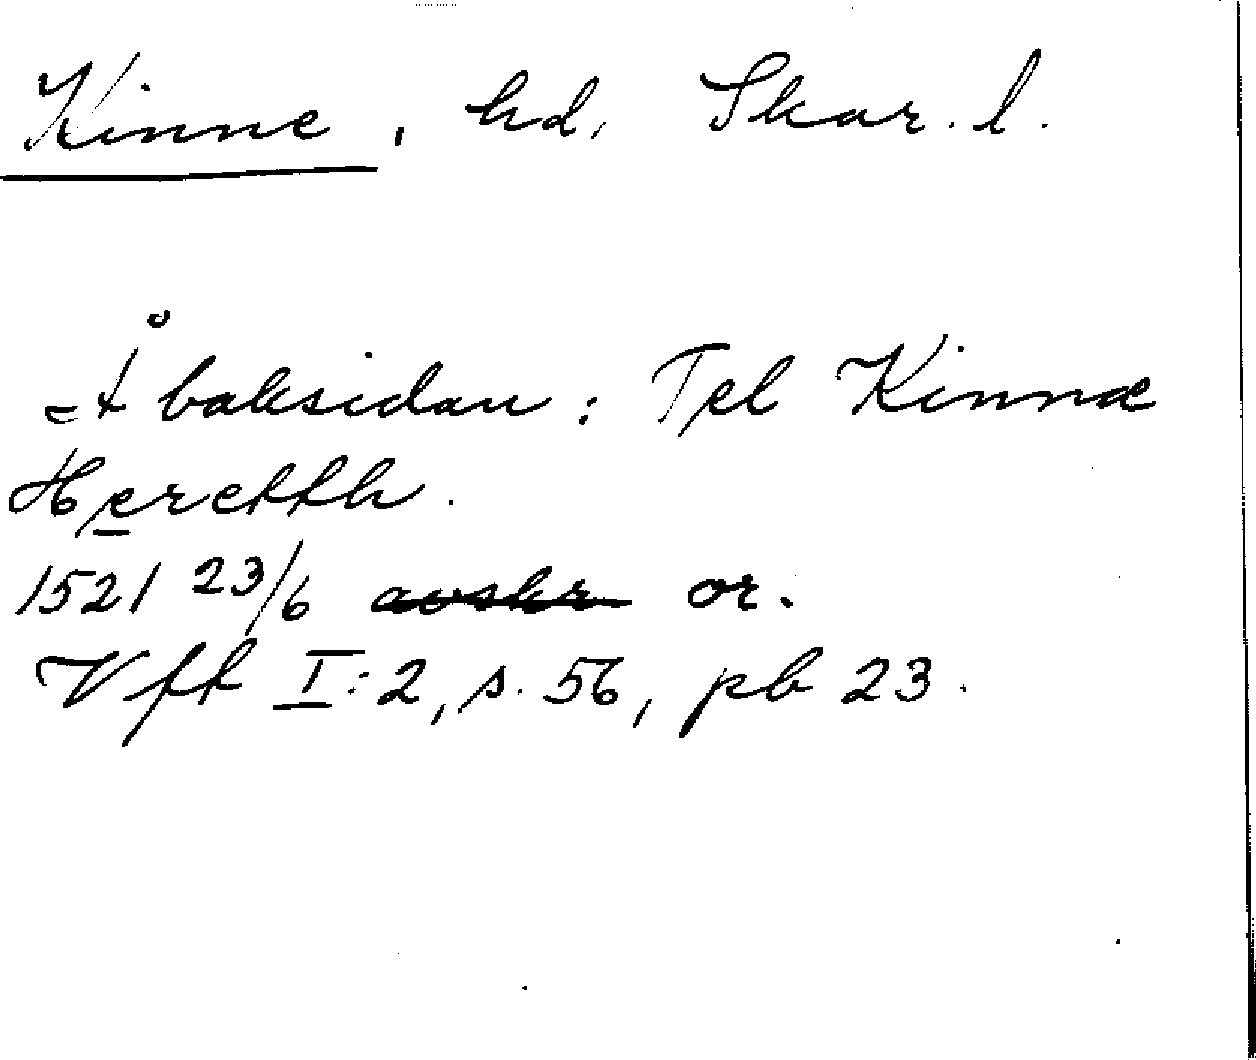 Kinne, hd, Skar. l.
Å baksidan: Tel Kinnæ
Heretth.
1521 23/6 avskr or.
Vft I:2, s. 56, pb 23.